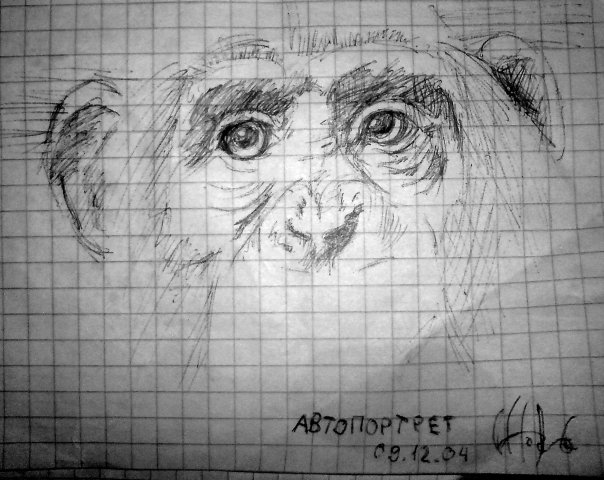 АВТОПОРТРЕТ
09.12.04